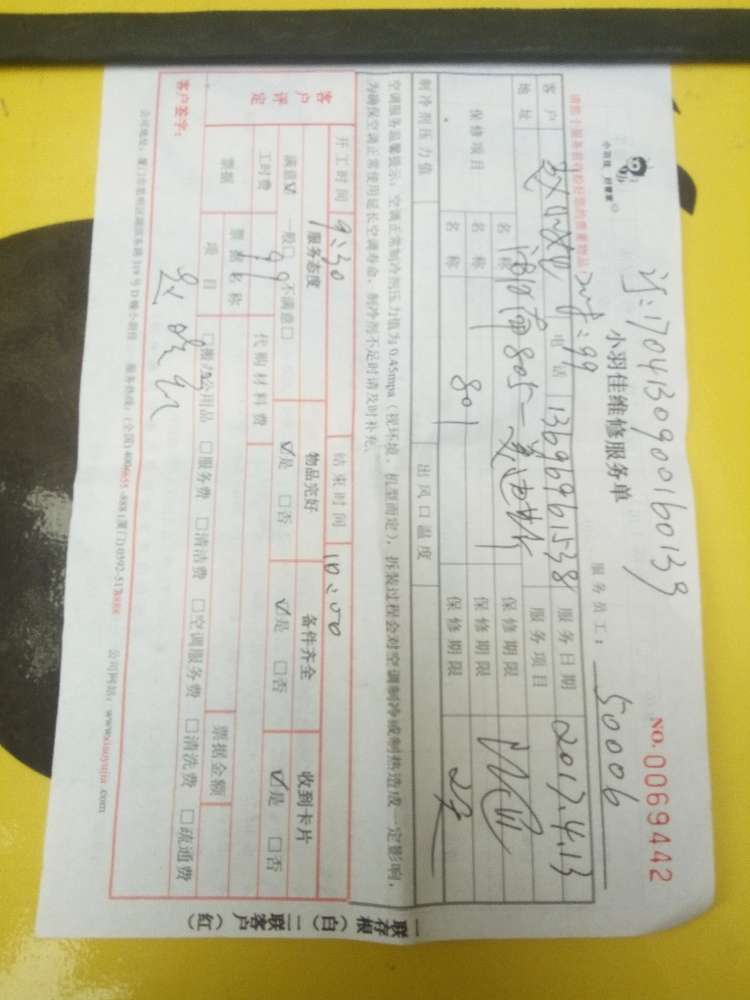 订:1704130900160139
小羽佳 好管家
小羽佳维修服务单
NO.0069442
服务员工: 50006
请您于服务前收检好您的贵重物品!
客户
99
电话 13696961538
服务日期 2017.4.13
地址
805
服务项目
保修项目
名称
801
保修期限
名称
保修期限
名称
保修期限
制冷剂压力值
出风口温度
空调服务温馨提示:空调正常制冷剂压力值为0.45mpa(视环境、机型而定),拆装过程会对空调制冷或制热造成一定影响,
为确保空调正常使用延长空调寿命,制冷剂不足时请及时补充。
开工时间 9:30
结束时间 10:00
客户评定
服务态度
物品完好
备件齐全
收到卡片
满意☑ 一般□ 不满意□
☑是 □否
☑是 □否
☑是 □否
工时费 99
代购材料费
票据
票据名称
票据金额
项目
□搬/公用品 □服务费 □清洁费 □空调服务费 □清洗费 □疏通费
客户签字:
公司地址:厦门市思明区湖滨东路319号D幢小羽佳 服务热线:(全国)4006655-888(厦门)0592-5178888 公司网站:www.xiaoyujia.com
一联存根(白)二联客户(红)